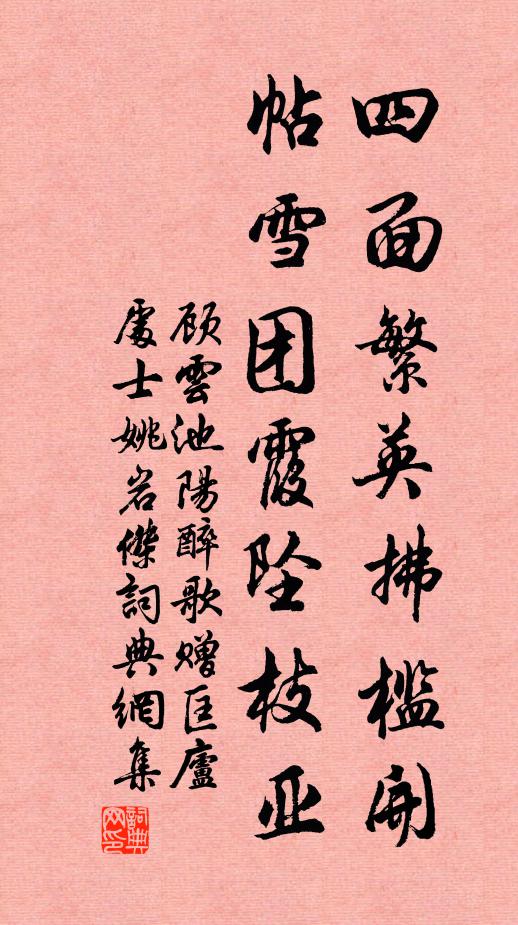 四面繁英拂檻開
帖雪团霞坠枝亚
顾雲池陽醉歌赠匡廬
處士姚岩傑詞典網集
詞典网印